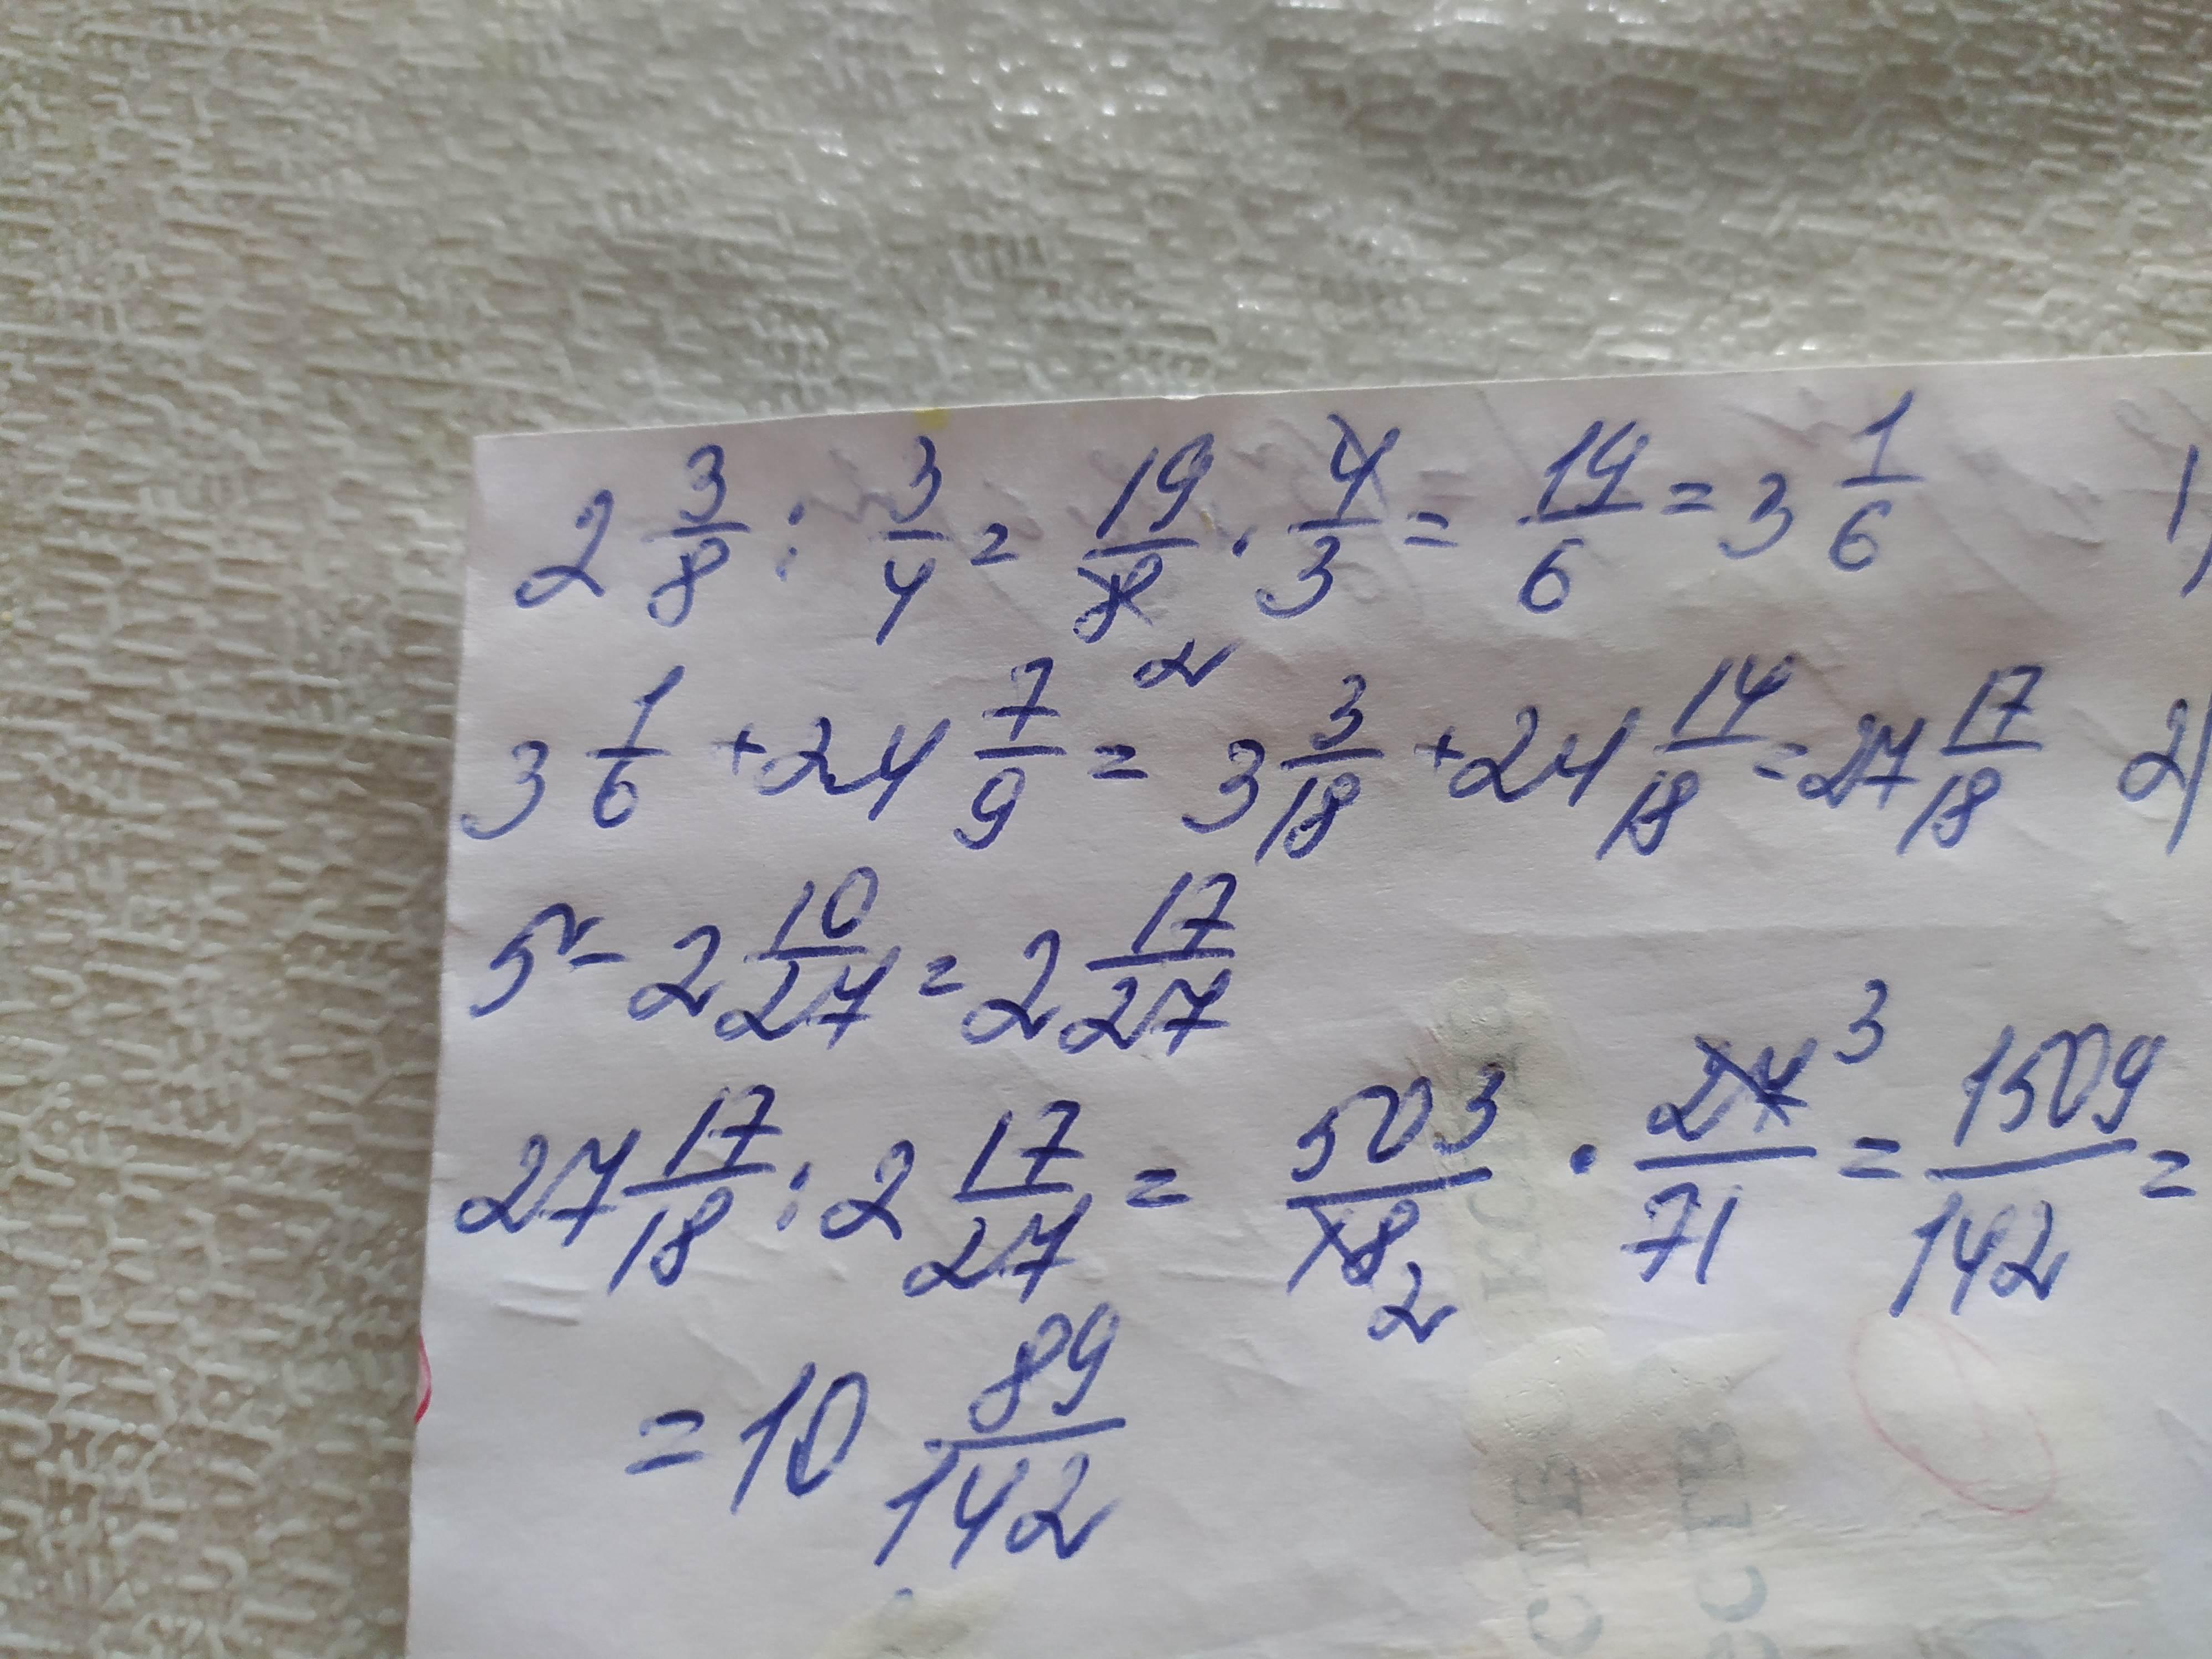 2 3/8 : 3/4 = 19/8 2 · 4/3 = 19/6 = 3 1/6 1)
3 1/6 + 24 7/9 = 3 3/18 + 24 14/18 = 27 17/18 2)
5 - 2 10/27 = 2 17/27
27 17/18 : 2 17/27 = 503/18 2 · 27 3/71 = 1509/142 =
= 10 89/142